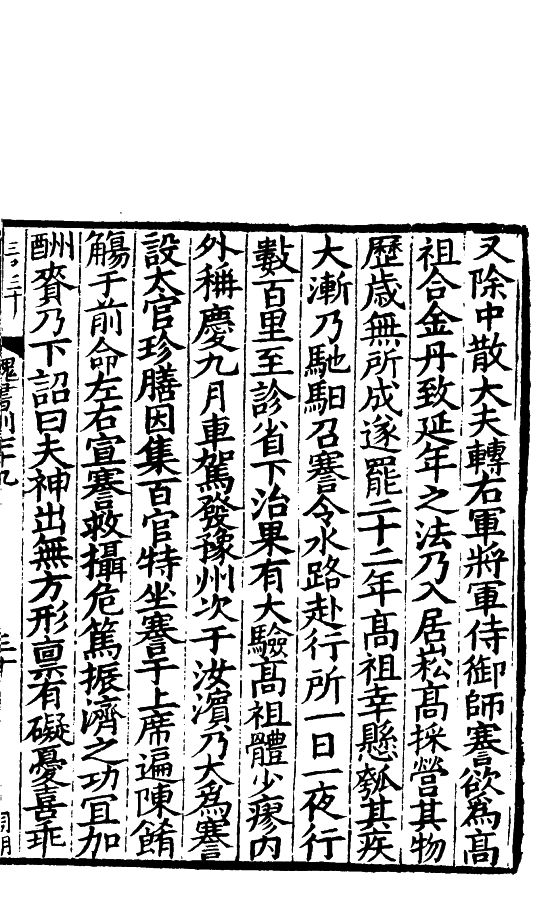 又除中散大夫轉右軍將軍侍御師謇欲爲髙
祖合金丹致延年之法乃入居崧髙採營其物
歷歲無所成遂罷二十二年髙祖幸懸瓠其疾
大漸乃馳馹召謇令水路赴行所一日一夜行
數百里至診省下治果有大驗髙祖體少瘳内
外稱慶九月車駕發豫州次于汝濵乃大爲謇
設太官珍膳因集百官特坐謇于上席遍陳餚
觴于前命左右宣謇救攝危篤振濟之功宜加
酬賚乃下詔曰夫神出無方形禀有礙憂喜乖